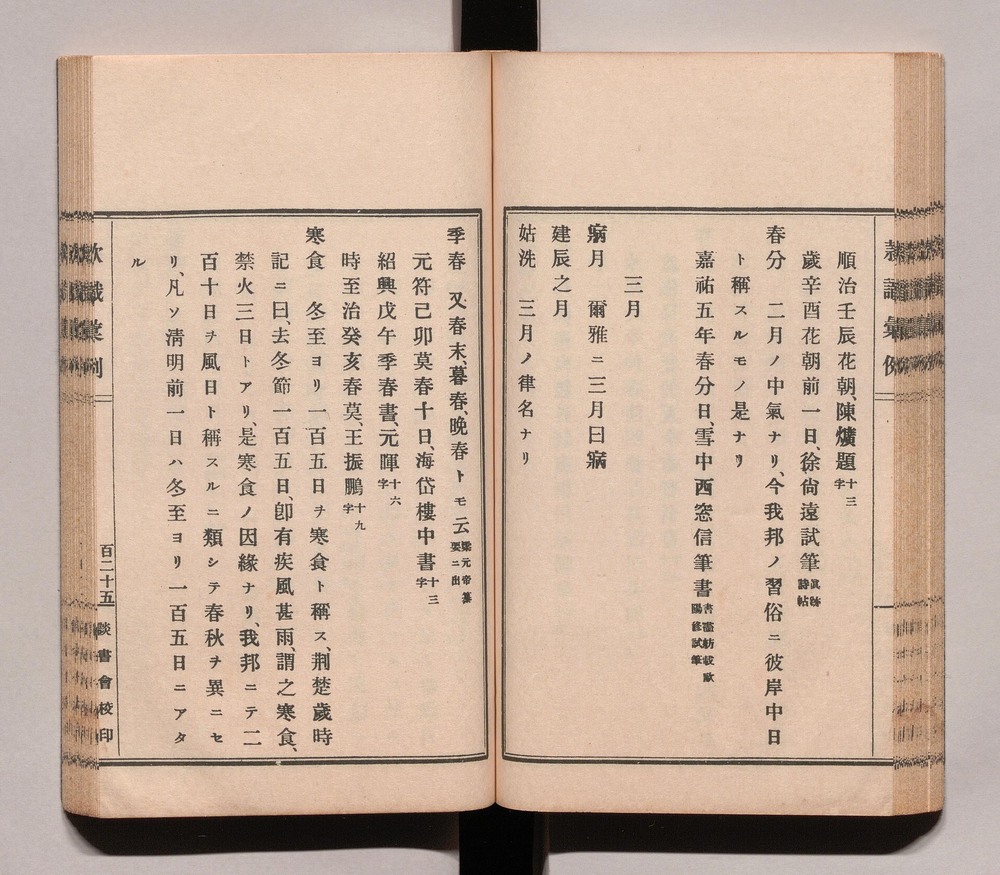 順治壬辰花朝、陳爌題十三字
歲辛酉花朝前一日、徐尙遠試筆眞跡詩帖
春分　二月ノ中氣ナリ、今我邦ノ習俗ニ彼岸中日
ト稱スルモノ是ナリ
嘉祐五年春分日、雪中西窓信筆書書畫舫載歐陽修試筆
三月
寎月　爾雅ニ三月曰寎
建辰之月
姑洗　三月ノ律名ナリ
季春　又春末、暮春、晚春トモ云梁元帝纂要ニ出
元符己卯莫春十日、海岱樓中書十三字
紹興戊午季春書、元暉十六字
時至治癸亥春莫、王振鵬十九字
寒食　冬至ヨリ一百五日ヲ寒食ト稱ス、荆楚歲時
記ニ曰、去冬節一百五日、卽有疾風甚雨、謂之寒食、
禁火三日トアリ、是寒食ノ因緣ナリ、我邦ニテ二
百十日ヲ風日ト稱スルニ類シテ春秋ヲ異ニセ
リ、凡ソ淸明前一日ハ冬至ヨリ一百五日ニアタ
ル
款識彙例
百二十五
談書會校印